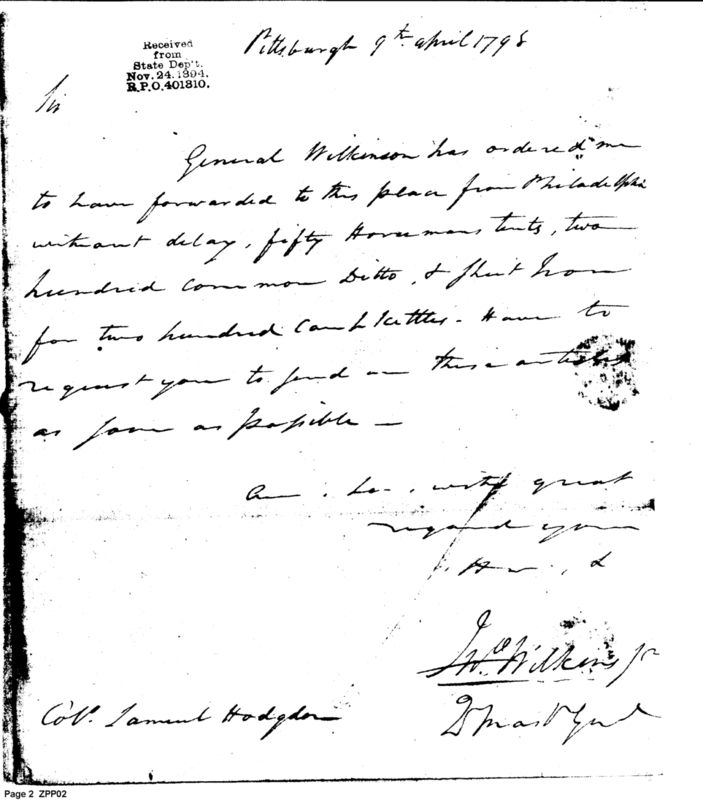 Pittsburgh 9th april 1798
Received
from
State Dep't.
Nov. 24. 1894.
R.P.O. 401310.
Sir
General Wilkinson has ordered me
to have forwarded to this place from Philadelphia
without delay, fifty Horsemans tents, two
hundred common Ditto, & Sheet Iron
for two hundred Camp Kettles - Have to
request you to send on these articles
as soon as possible -
with great
regard your
Jno Wilkins Jr
Colo. Samuel Hodgdon
Page 2 ZPP02